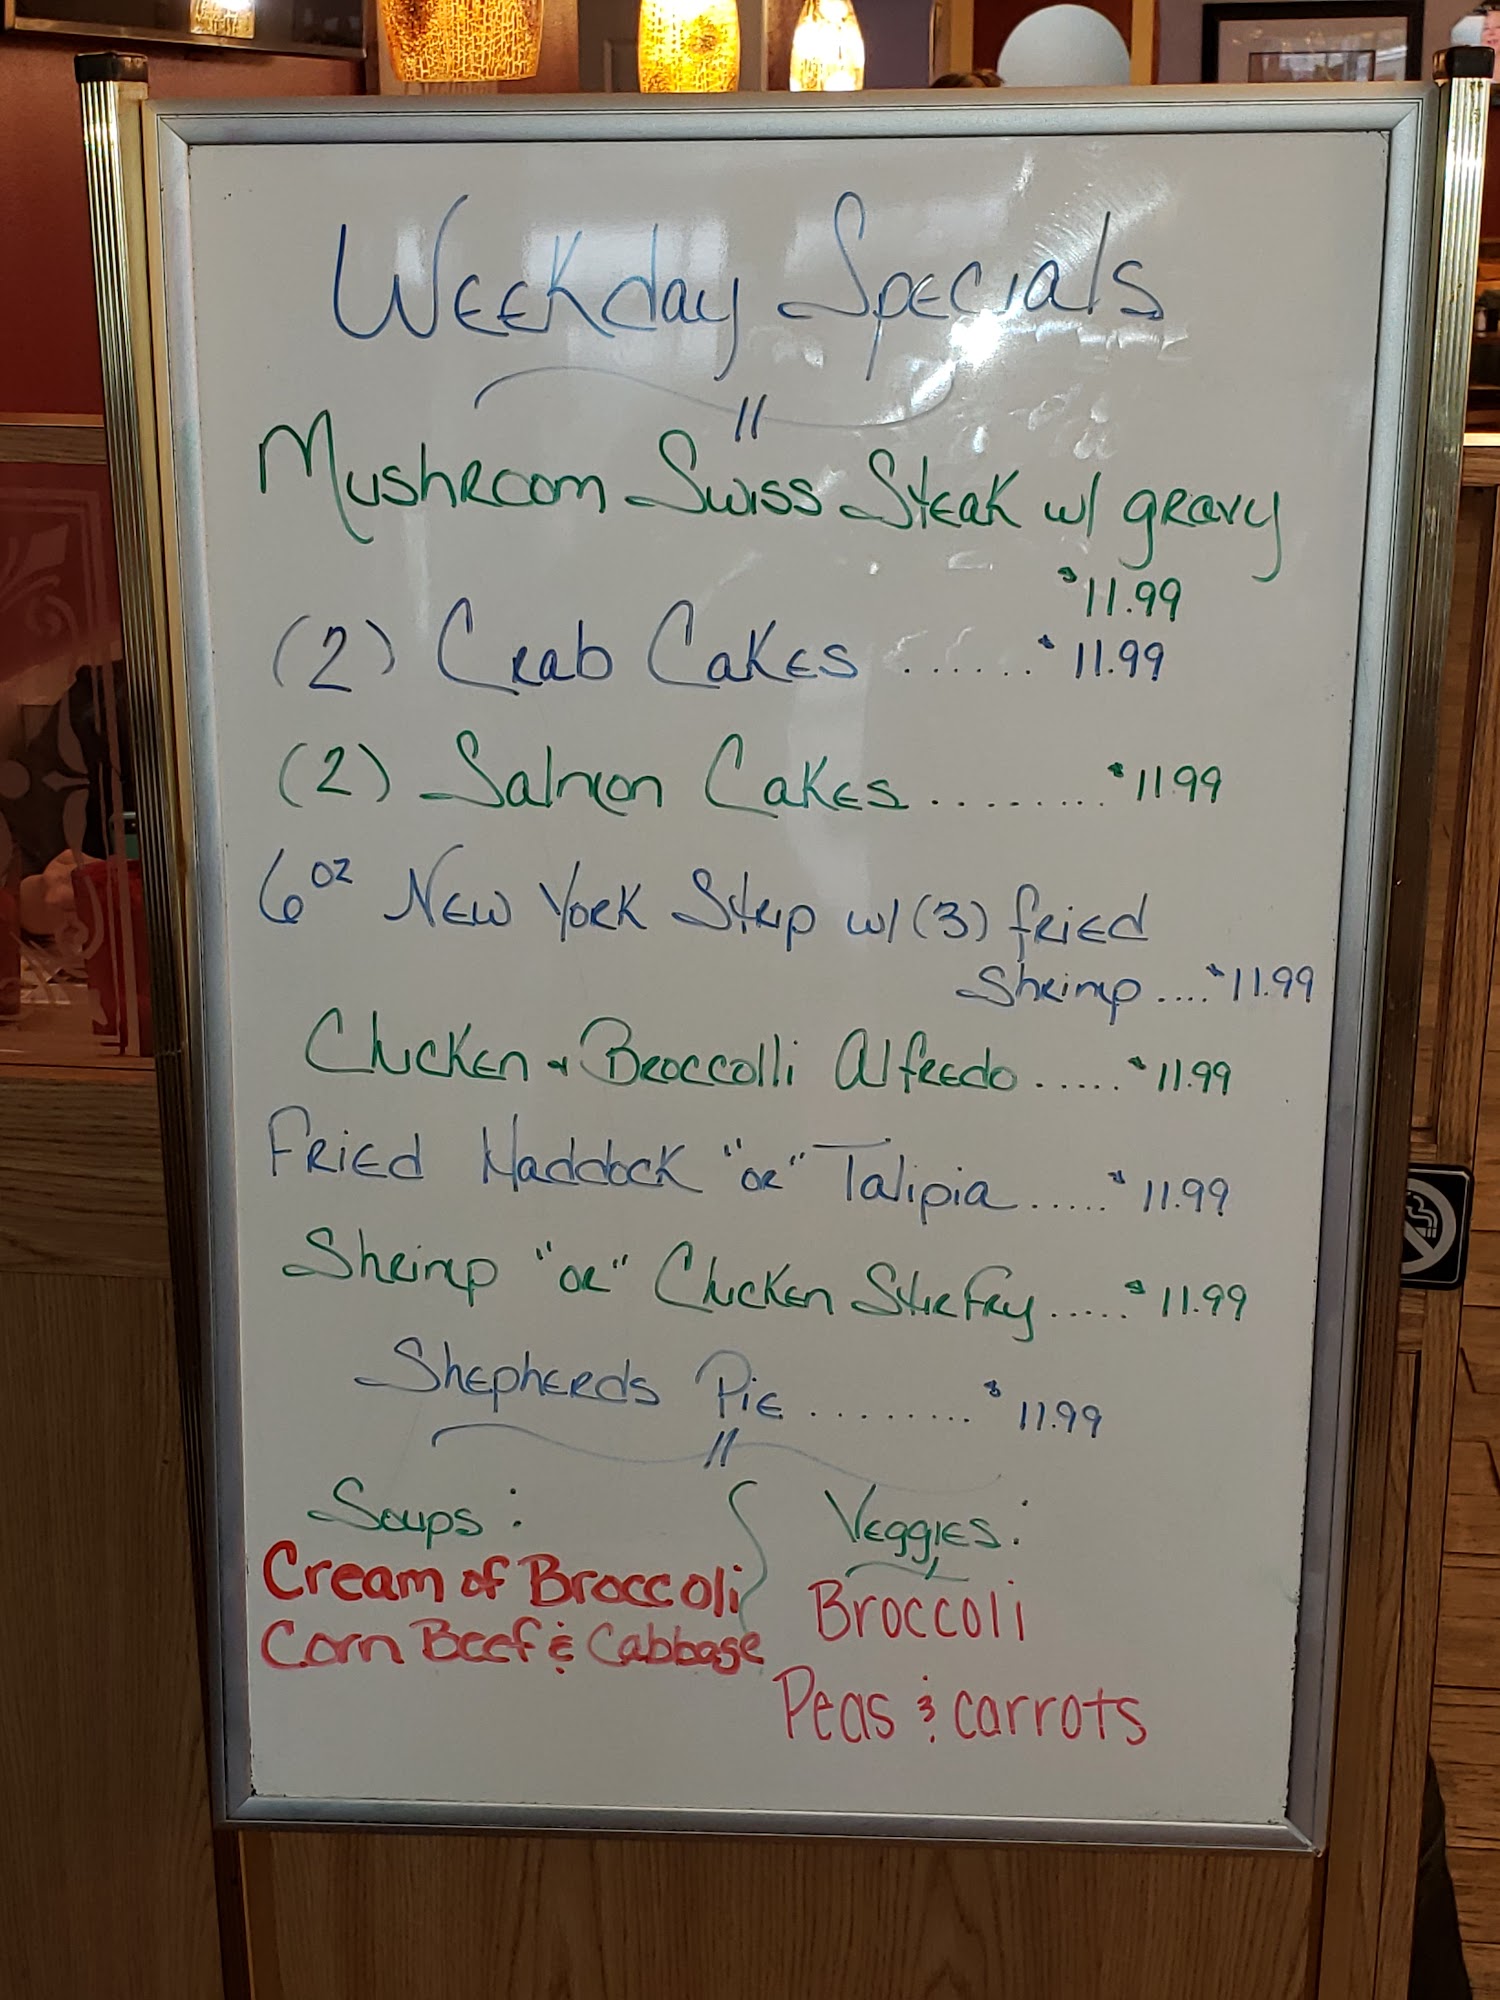 Weekday Specials
Mushroom Swiss Steak w/ gravy
$11.99
(2) Crab Cakes ....... $11.99
(2) Salmon Cakes ......... $11.99
6oz New York Strip w/ (3) fried
Shrimp .... $11.99
Chicken & Broccolli Alfredo ..... $11.99
Fried Haddock "or" Talipia ..... $11.99
Shrimp "or" Chicken Stir Fry ..... $11.99
Shepherds Pie ........ $11.99
Soups:
Cream of Broccoli
Corn Beef & Cabbage
Veggies:
Broccoli
Peas & carrots